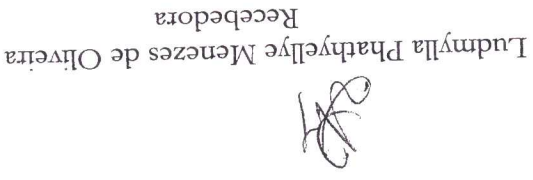 Ludmylla Phathyellye Menezes de Oliveira
Recebedora